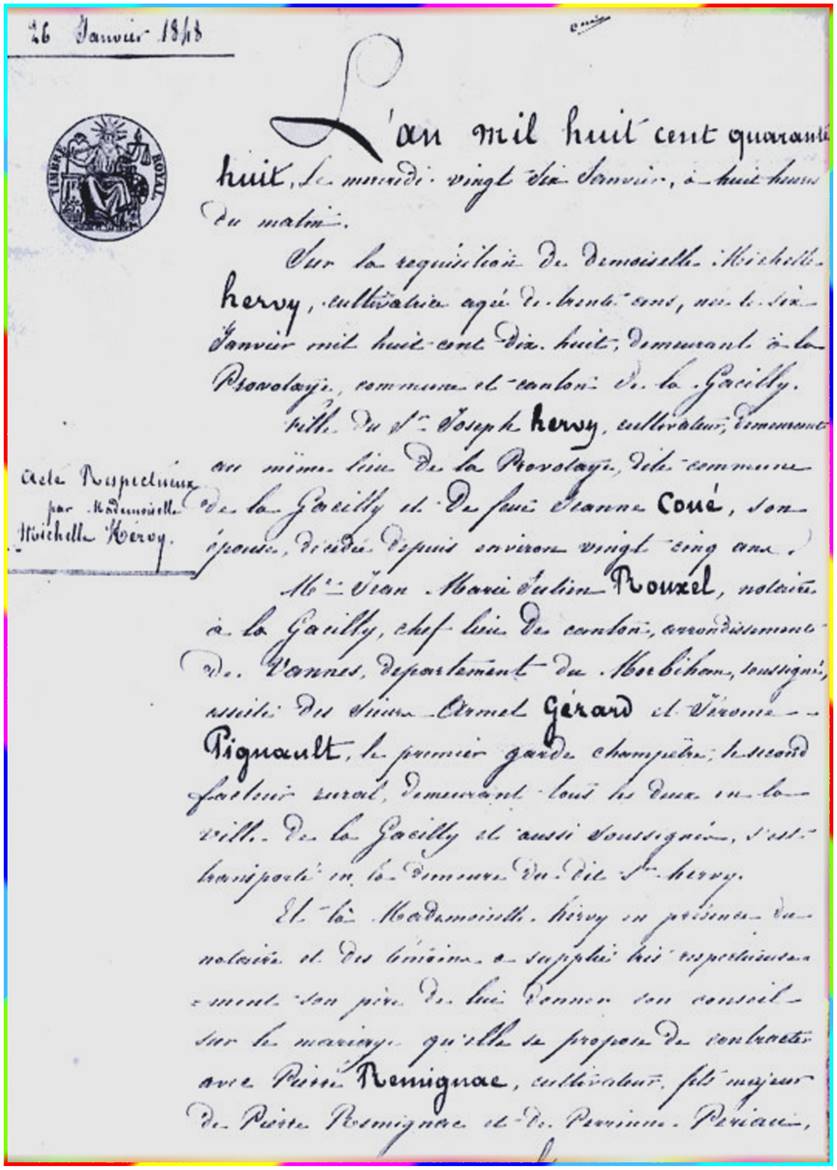 26 Janvier 1848
TIMBRE ROYAL
L'an mil huit cent quarante
huit, Le mercredi vingt Six Janvier, à huit heures
Du matin.
Sur la requisition de demoiselle Michelle
hervy, cultivatrice agée de trente ans, née le six
Janvier mil huit cent Dix huit, demeurant à la
Provotaye, commune et canton de la Gacilly.
fille du Sr Joseph hervy, cultivateur, demeurant
au même lieu de la Provotaye, dite commune
Acte Respectueux
par Mademoiselle
Michelle Hervy.
de la Gacilly et De feue Jeanne Coué, son
épouse, décédée depuis environ vingt cinq ans.
Me Jean Marie Julien Rouxel, notaire
à la Gacilly, chef lieu De canton, arrondissement
de Vannes, departement du Morbihan, soussigné,
assisté des Sieurs Armel Gérard et Jérome
Pignault, le premier garde champêtre, le second
facteur rural, demeurant tous les deux en la
ville De la Gacilly et aussi soussignés, s'est
transporté en la demeure du dit Sr hervy.
Et là Mademoiselle hervy en présence du
notaire et des témoins a supplié très respectueuse
=ment son père de lui donner son conseil
sur le mariage qu'elle se propose de contracter
avec Pierre Remignac, cultivateur, fils majeur
de Pierre Remignac et de Perrinne